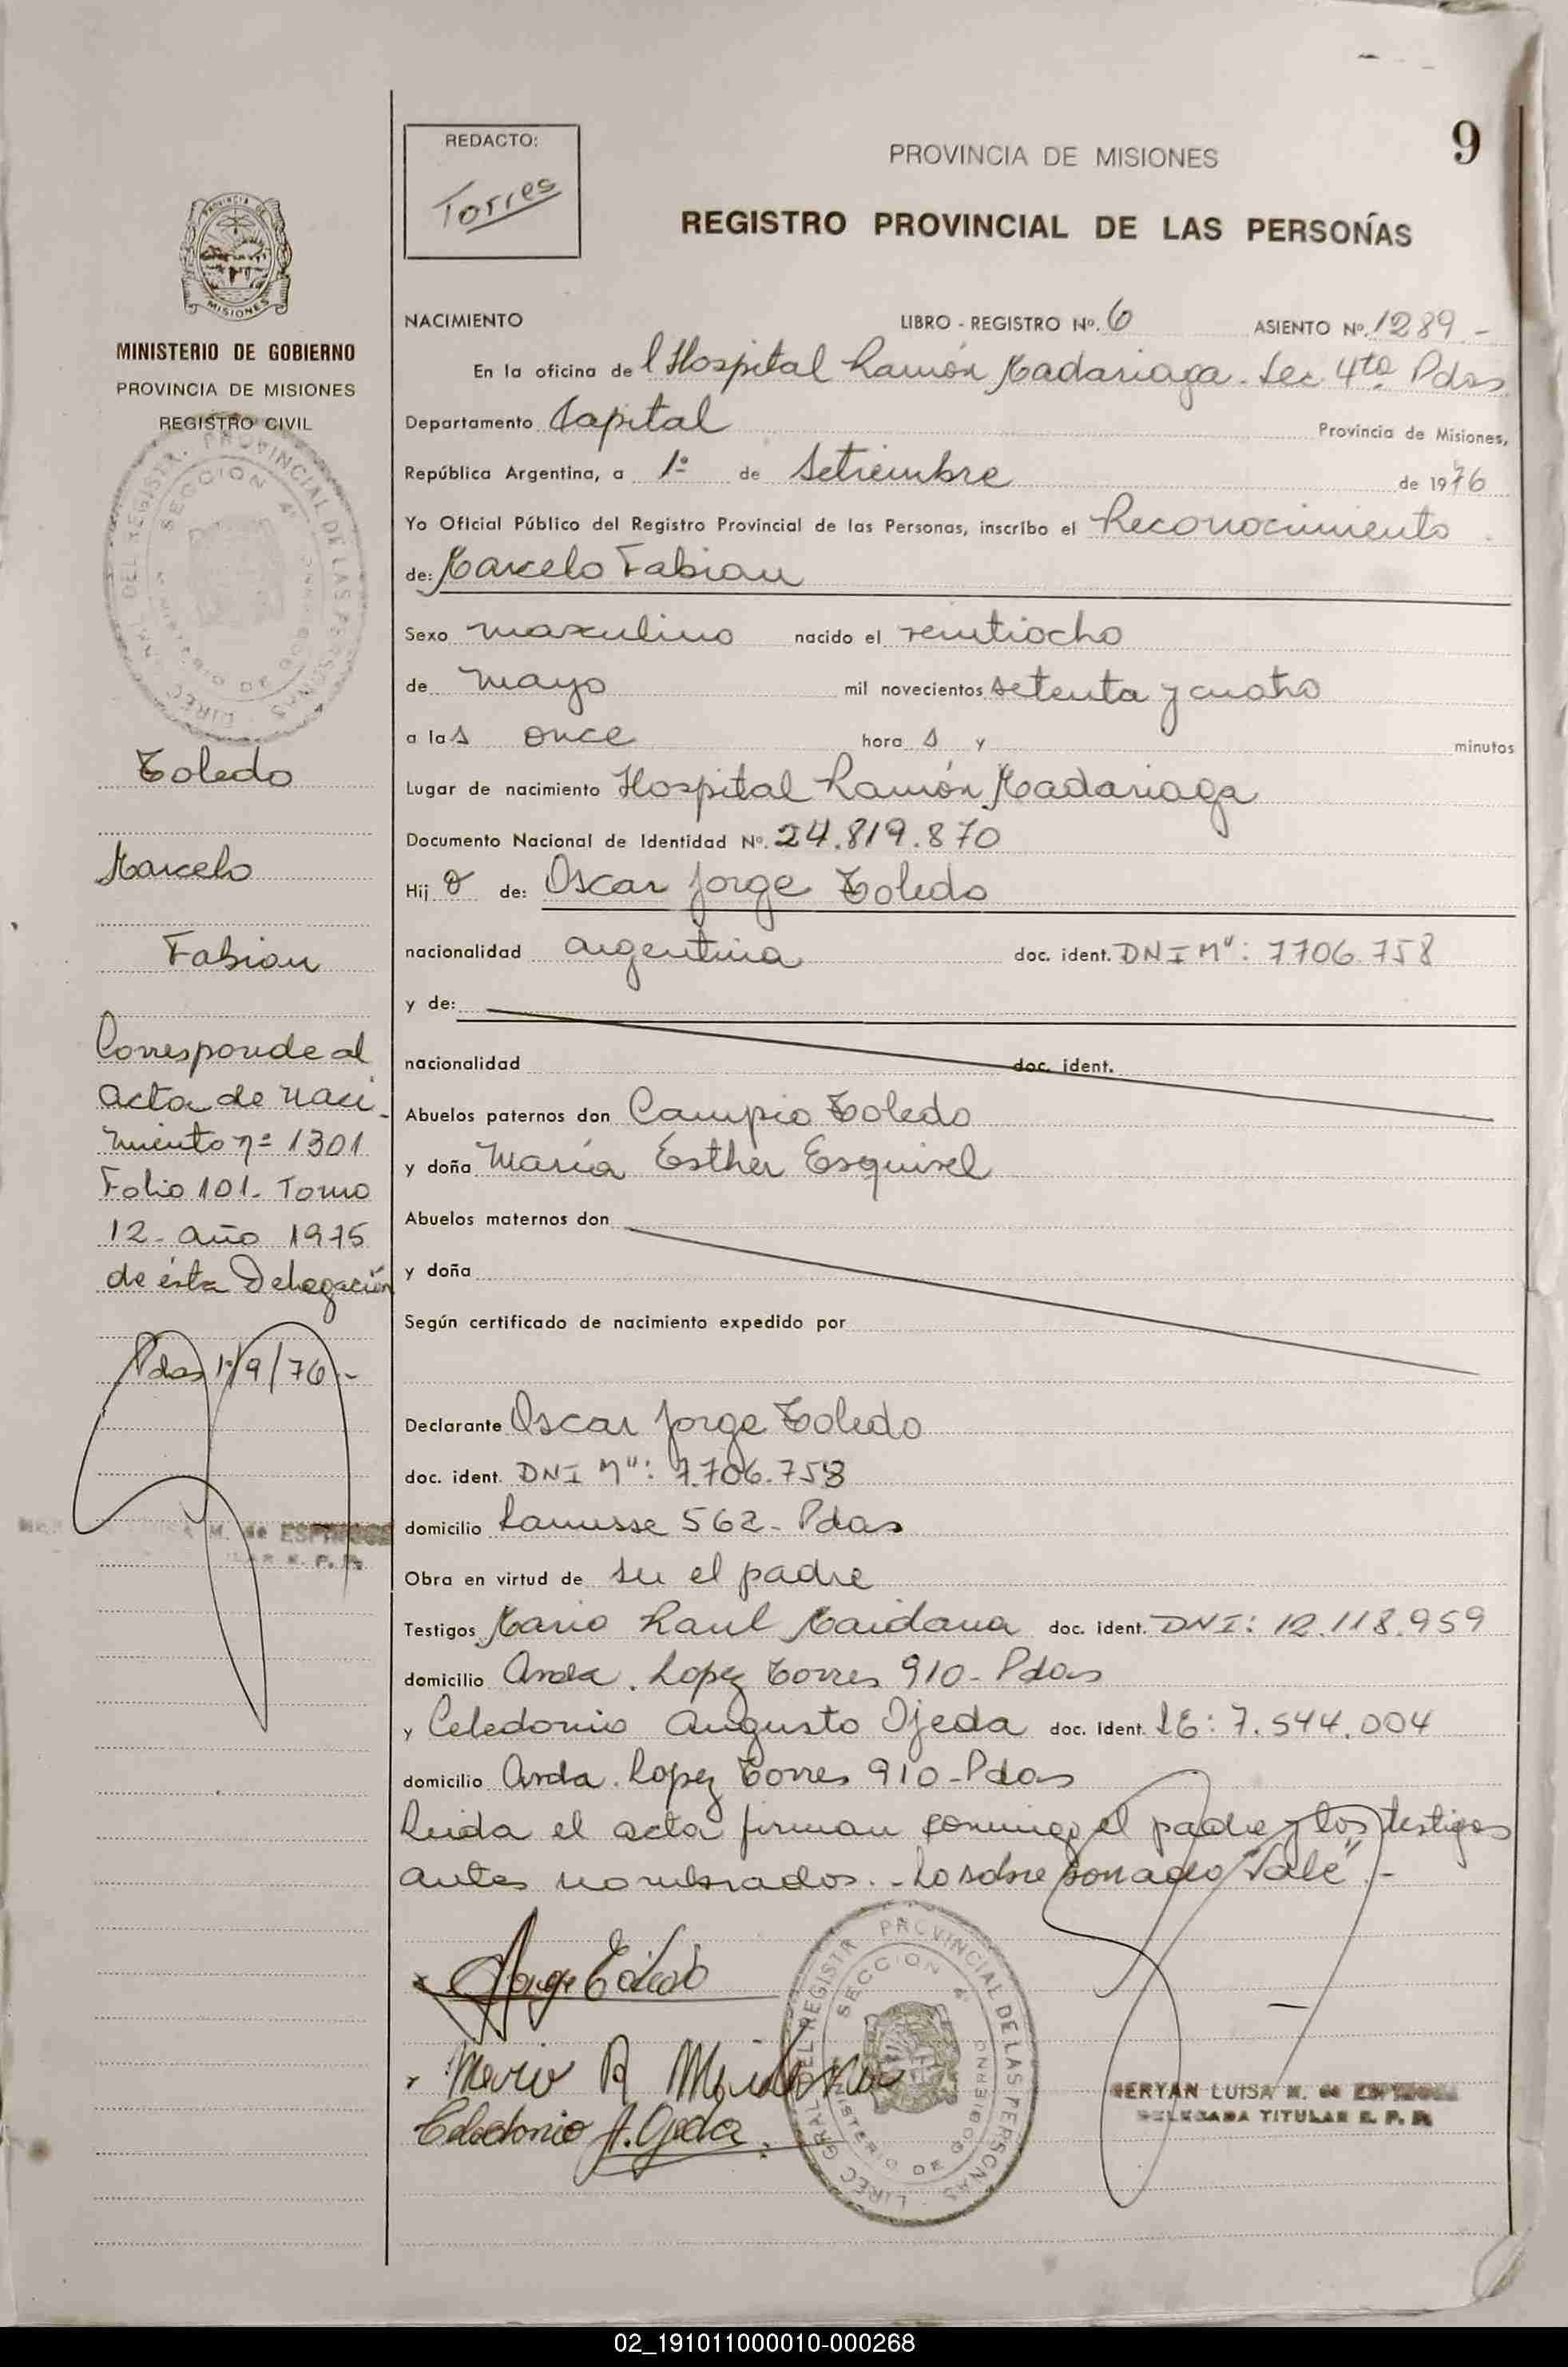 9
REDACTO:
Torres
PROVINCIA DE MISIONES
REGISTRO PROVINCIAL DE LAS PERSONAS
MISIONES
MINISTERIO DE GOBIERNO
PROVINCIA DE MISIONES
REGISTRO CIVIL
NACIMIENTO LIBRO - REGISTRO Nº. 6 ASIENTO Nº. 1289 -
En la oficina del Hospital Ramón Madariaga - Sec. 4ta Pdas
Departamento Capital Provincia de Misiones,
República Argentina, a 1º de Setiembre de 1976
Yo Oficial Público del Registro Provincial de las Personas, inscribo el Reconocimiento
de: Marcelo Fabian
Sexo masculino nacido el veintiocho
de mayo mil novecientos setenta y cuatro
a las once horas y minutos
Lugar de nacimiento Hospital Ramón Madariaga
Documento Nacional de Identidad Nº. 24.819.870
Hijo de: Oscar Jorge Toledo
nacionalidad argentina doc. ident. DNI Mº: 7706.758
y de:
nacionalidad doc. ident.
Abuelos paternos don Campio Toledo
y doña María Esther Esquivel
Abuelos maternos don
y doña
Según certificado de nacimiento expedido por
Declarante Oscar Jorge Toledo
doc. ident. DNI Mº: 7.706.758
domicilio Lanusse 562 - Pdas
Obra en virtud de ser el padre
Testigos Mario Raul Maidana doc. ident. DNI: 12.118.959
domicilio Avda. Lopez Torres 910 - Pdas
y Celedonio Augusto Ojeda doc. ident. LE: 7.544.004
domicilio Avda. Lopez Torres 910 - Pdas
Leida el acta firman conmigo el padre y los testigos
antes nombrados. - Lo sobre borrado "Vale". -
Jorge Toledo
Mario R Maidana
Celedonio A. Ojeda
DIREC GRAL DEL REGISTR. PROVINCIAL DE LAS PERSONAS
SECCION 4ª
MINISTERIO DE GOBIERNO
LUISA M. de ESPINOSA
DELEGADA TITULAR R. P. P.
DIREC GRAL DEL REGISTR. PROVINCIAL DE LAS PERSONAS
SECCION 4ª
MINISTERIO DE GOBIERNO
Toledo
Marcelo
Fabian
Corresponde al
acta de naci-
miento nº 1301
Folio 101 - Tomo
12 - año 1975
de ésta Delegación
Pdas 1º/9/76 -
LUISA M. de ESPINOSA
R. P. P.
02_191011000010-000268